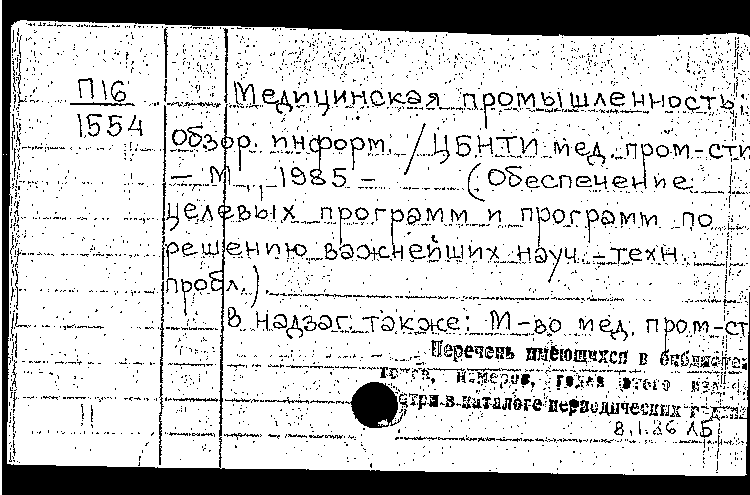 П16
1554
Медицинская промышленность:
Обзор. информ. / ЦБНТИ мед. пром-сти
– М., 1985 – (Обеспечение
целевых программ и программ по
решению важнейших науч.-техн.
пробл.).
В надзаг. также: М-во мед. пром-ст
Перечень имеющихся в библиотеке
номеров, годов этого
в каталоге периодических
8.1.86 ЛБ